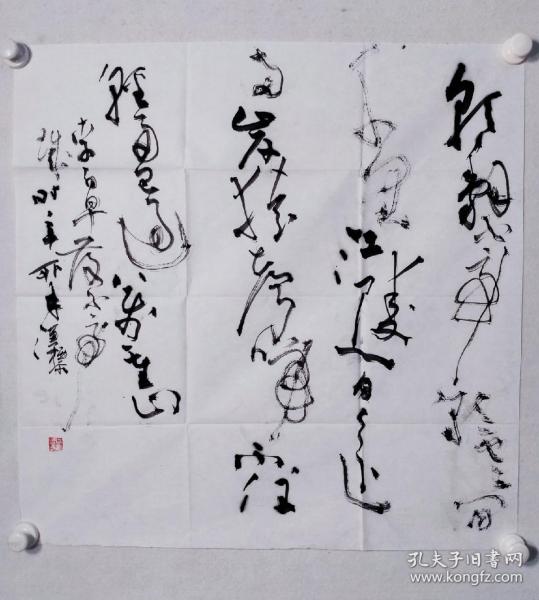 朝辭白帝彩雲间
千里江陵一日还
两岸猿聲啼不住
輕舟已過萬重山
李白早發白帝
城时年
孔夫子旧书网
www.kongfz.com